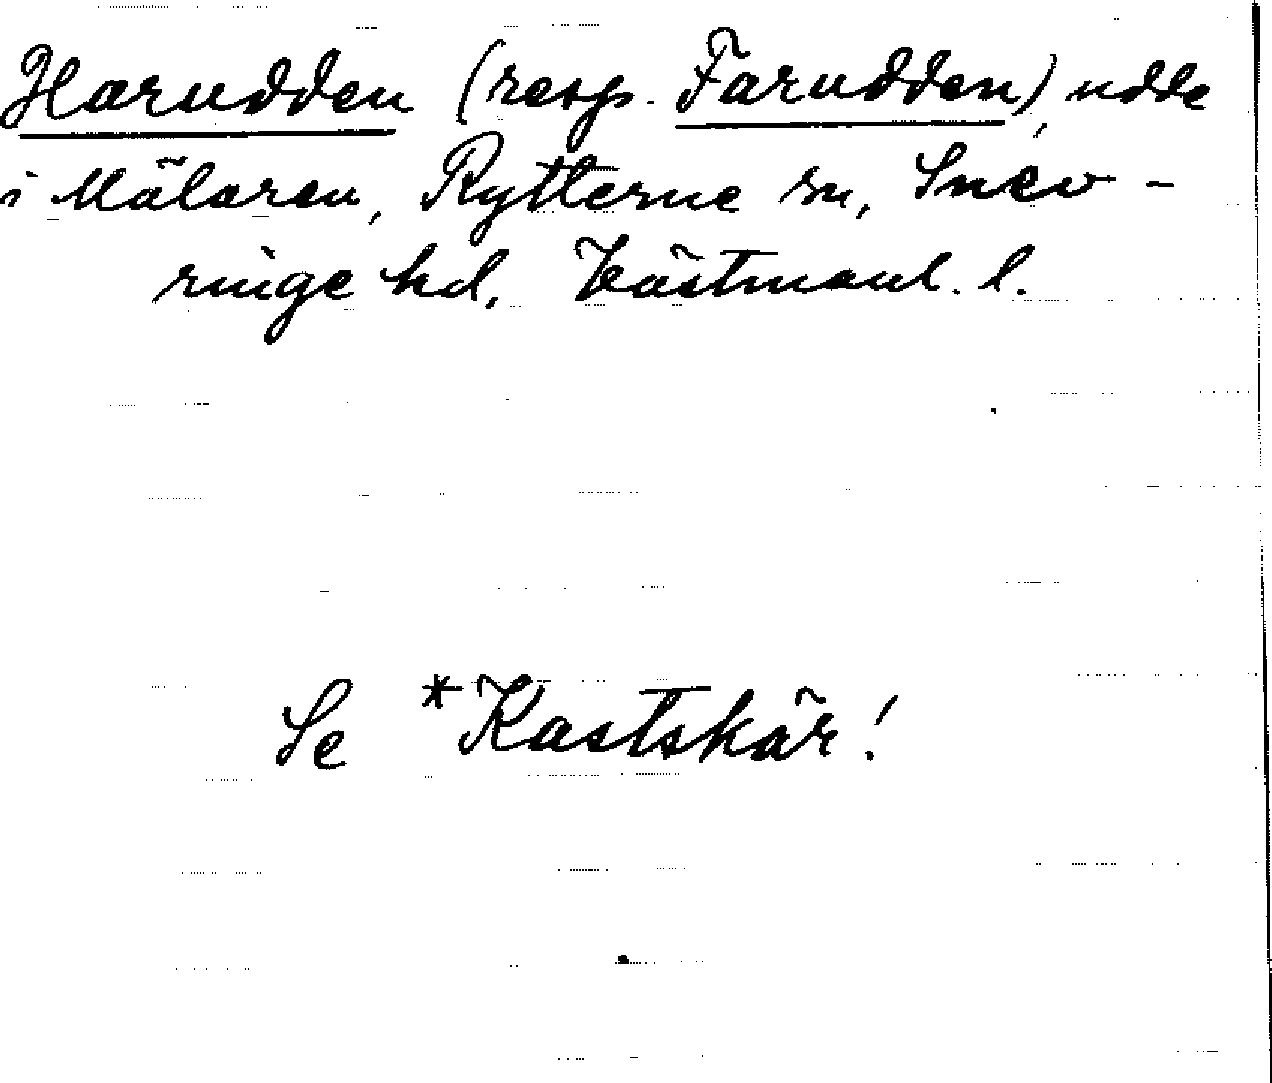 Harudden (resp. Farudden), udde
i Mälaren, Rytterne sn, Snev-
ringe hd, Västmanl. l.
Se *Kastskär!